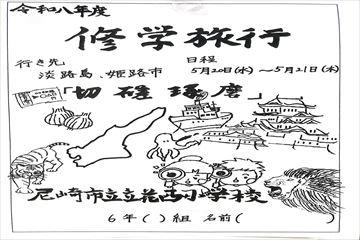 令和八年度
修学旅行
行き先
淡路島、姫路市
日程
5月20日(水)～5月21日(木)
「切磋琢磨」
尼崎市立立花西小学校
6年( )組 名前(